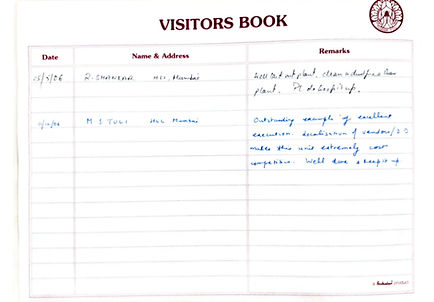 VISITORS BOOK
Date Name & Address Remarks
R. SHANKAR HLL, Mumbai Well laid out plant, clean
plant. Pl. do keep it up.
M S TULI HLL Mumbai Outstanding example of excellent
execution. localisation of vendors
makes this unit extremely cost
competitive. Well done & keep it up
a product